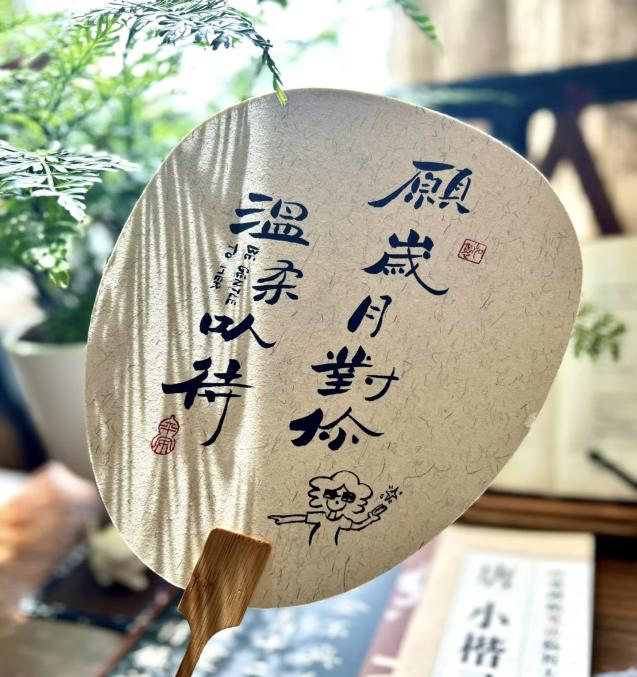 願歲月對你
溫柔以待
BE GENTLE
TO HER
唐 小楷